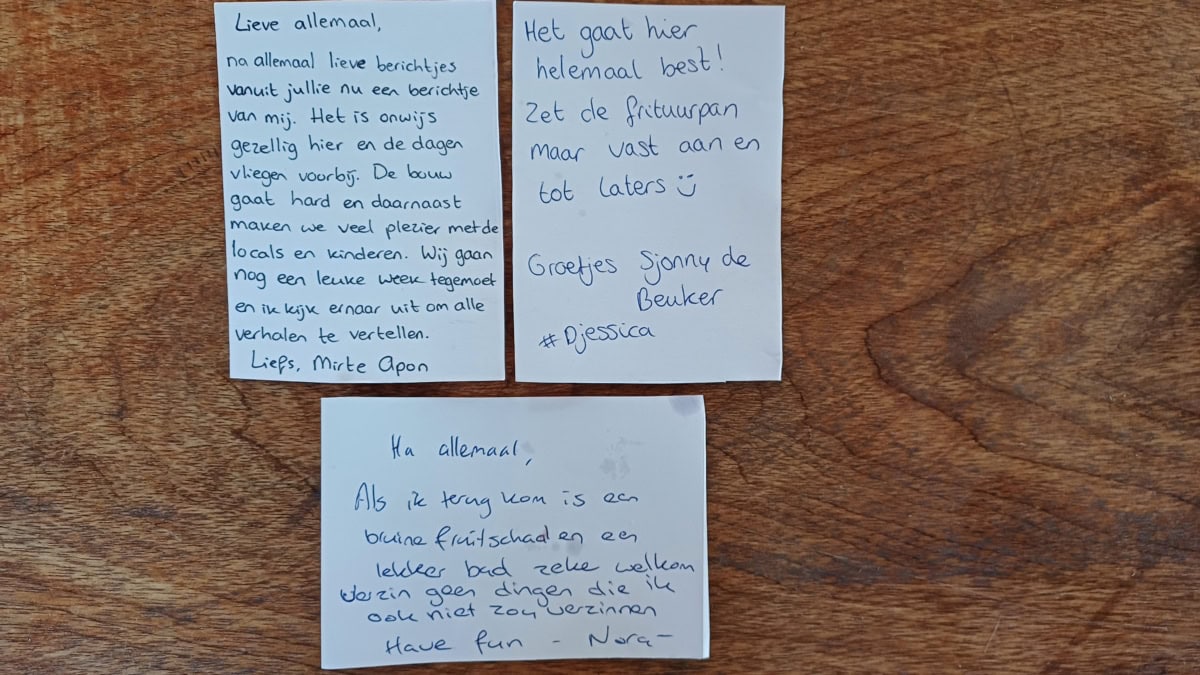 Lieve allemaal,
na allemaal lieve berichtjes
vanuit jullie nu een berichtje
van mij. Het is onwijs
gezellig hier en de dagen
vliegen voorbij. De bouw
gaat hard en daarnaast
maken we veel plezier met de
locals en kinderen. Wij gaan
nog een leuke week tegemoet
en ik kijk ernaar uit om alle
verhalen te vertellen.
Liefs, Mirte Apon
Het gaat hier
helemaal best!
Zet de frituurpan
maar vast aan en
tot laters ü
Groetjes Sjonny de
Beuker
#Djessica
Ha allemaal,
Als ik terug kom is een
bruine fruitschaal en een
lekker bad zeke welkom
Verzin geen dingen die ik
ook niet zou verzinnen
Have fun - Nora -